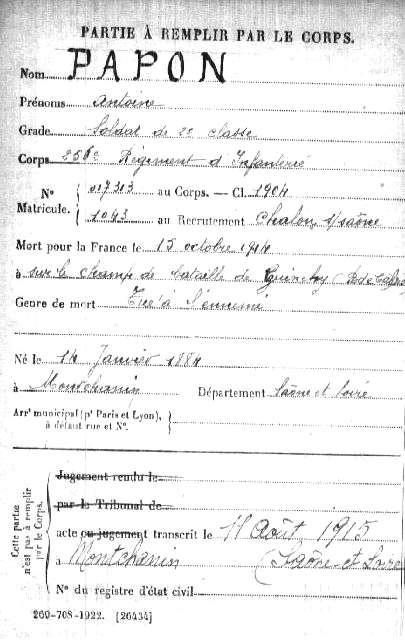 PARTIE À REMPLIR PAR LE CORPS.
Nom PAPON
Prénoms Antoine
Grade Soldat de 2e classe
Corps 256e Régiment d'Infanterie
N° Matricule. { 017313 au Corps. — Cl. 1904
1043 au Recrutement Chalon s/saône
Mort pour la France le 15 octobre 1914
à sur le champ de bataille de Cuinchy (
Genre de mort Tué à l'ennemi
Né le 14 Janvier 1884
à Montchanin Département Saône et Loire
Arr' municipal (p' Paris et Lyon),
à défaut rue et N°.
Cette partie n'est pas à remplir par le Corps.
Jugement rendu le
par le Tribunal de
acte ou jugement transcrit le 11 Août 1915
à Montchanin (Saône et Loire
N° du registre d'état civil
269-708-1922. [26434]